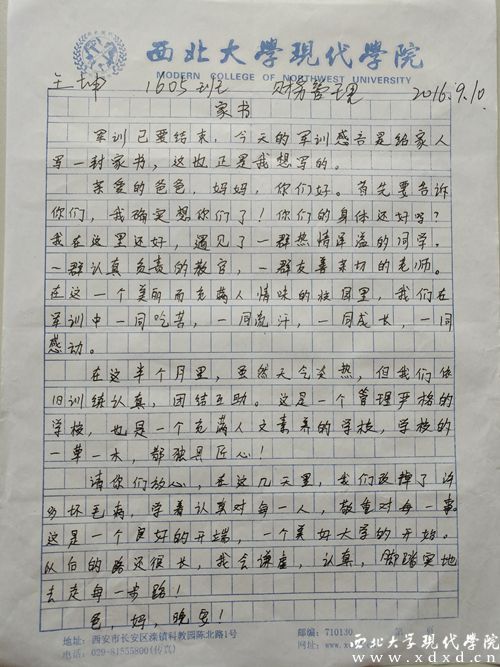 西北大學現代學院
MODERN COLLEGE OF NORTHWEST UNIVERSITY
王坤 1605班 财务管理 2016.9.10
家书
军训已要结束，今天的军训感言是给家人
写一封家书，这也正是我想写的。
亲爱的爸爸，妈妈，你们好。首先要告诉
你们，我确实想你们了！你们的身体还好吗？
我在这里还好，遇见了一群热情洋溢的同学，
一群认真负责的教官，一群友善亲切的老师。
在这一个美丽而充满人情味的校园里，我们在
军训中一同吃苦，一同流汗，一同成长，一同
感动。
在这半个月里，虽然天气炎热，但我们依
旧训练认真，团结互助。这是一个管理严格的
学校，也是一个充满人文素养的学校，学校的
一草一木，都独具匠心！
请你们放心，在这几天里，我们改掉了许
多坏毛病，学着认真对每一人，敬重对每一事。
这是一个良好的开端，一个美好大学的开始。
以后的路还很长，我会谦虚，认真，脚踏实地
去走每一步路！
爸，妈，晚安！
地址：西安市长安区滦镇科教园陈北路1号
邮编：710130
第 页
电话：029-81555800(传真)
网址：www.xdxd.cn
西北大学现代学院
www.xdxd.cn